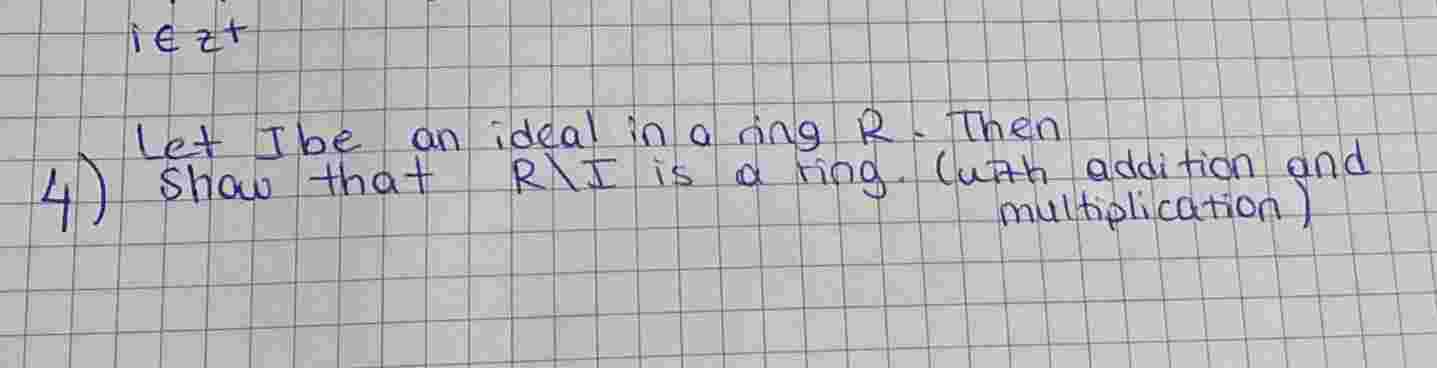 i∈z+
Let I be an ideal in a ring R. Then
4) Show that R\I is a ring. (with addition and
multiplication)